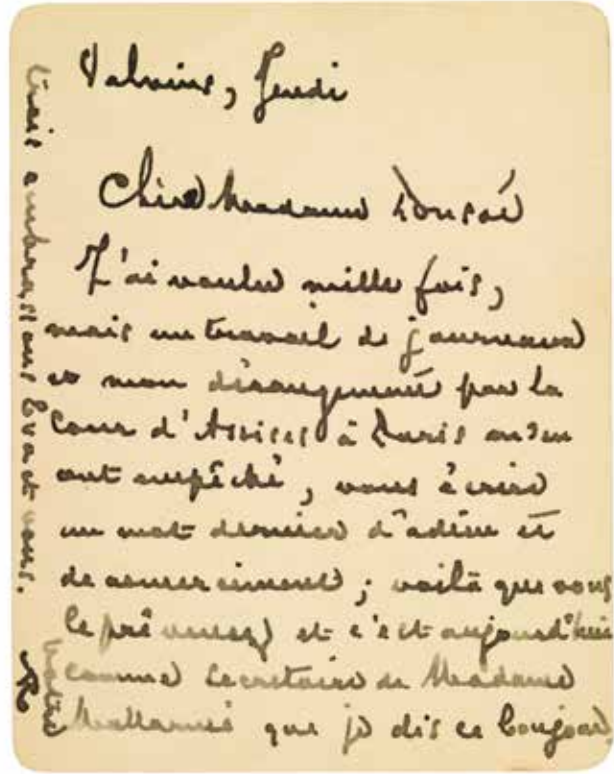 Valvins, Jeudi
Chère Madame
J'ai voulu mille fois,
mais un travail de journaux
et mon dérangement par la
Cour d'Assises à Paris m'en
ont empêché, vous écrire
un mot dernier d'adieu et
de remerciement ; voilà que vous
le prévenez et c'est aujourd'hui
comme secrétaire de Madame
Mallarmé que je dis ce bonjour.
trois embrassons Eva et vous.
Votre